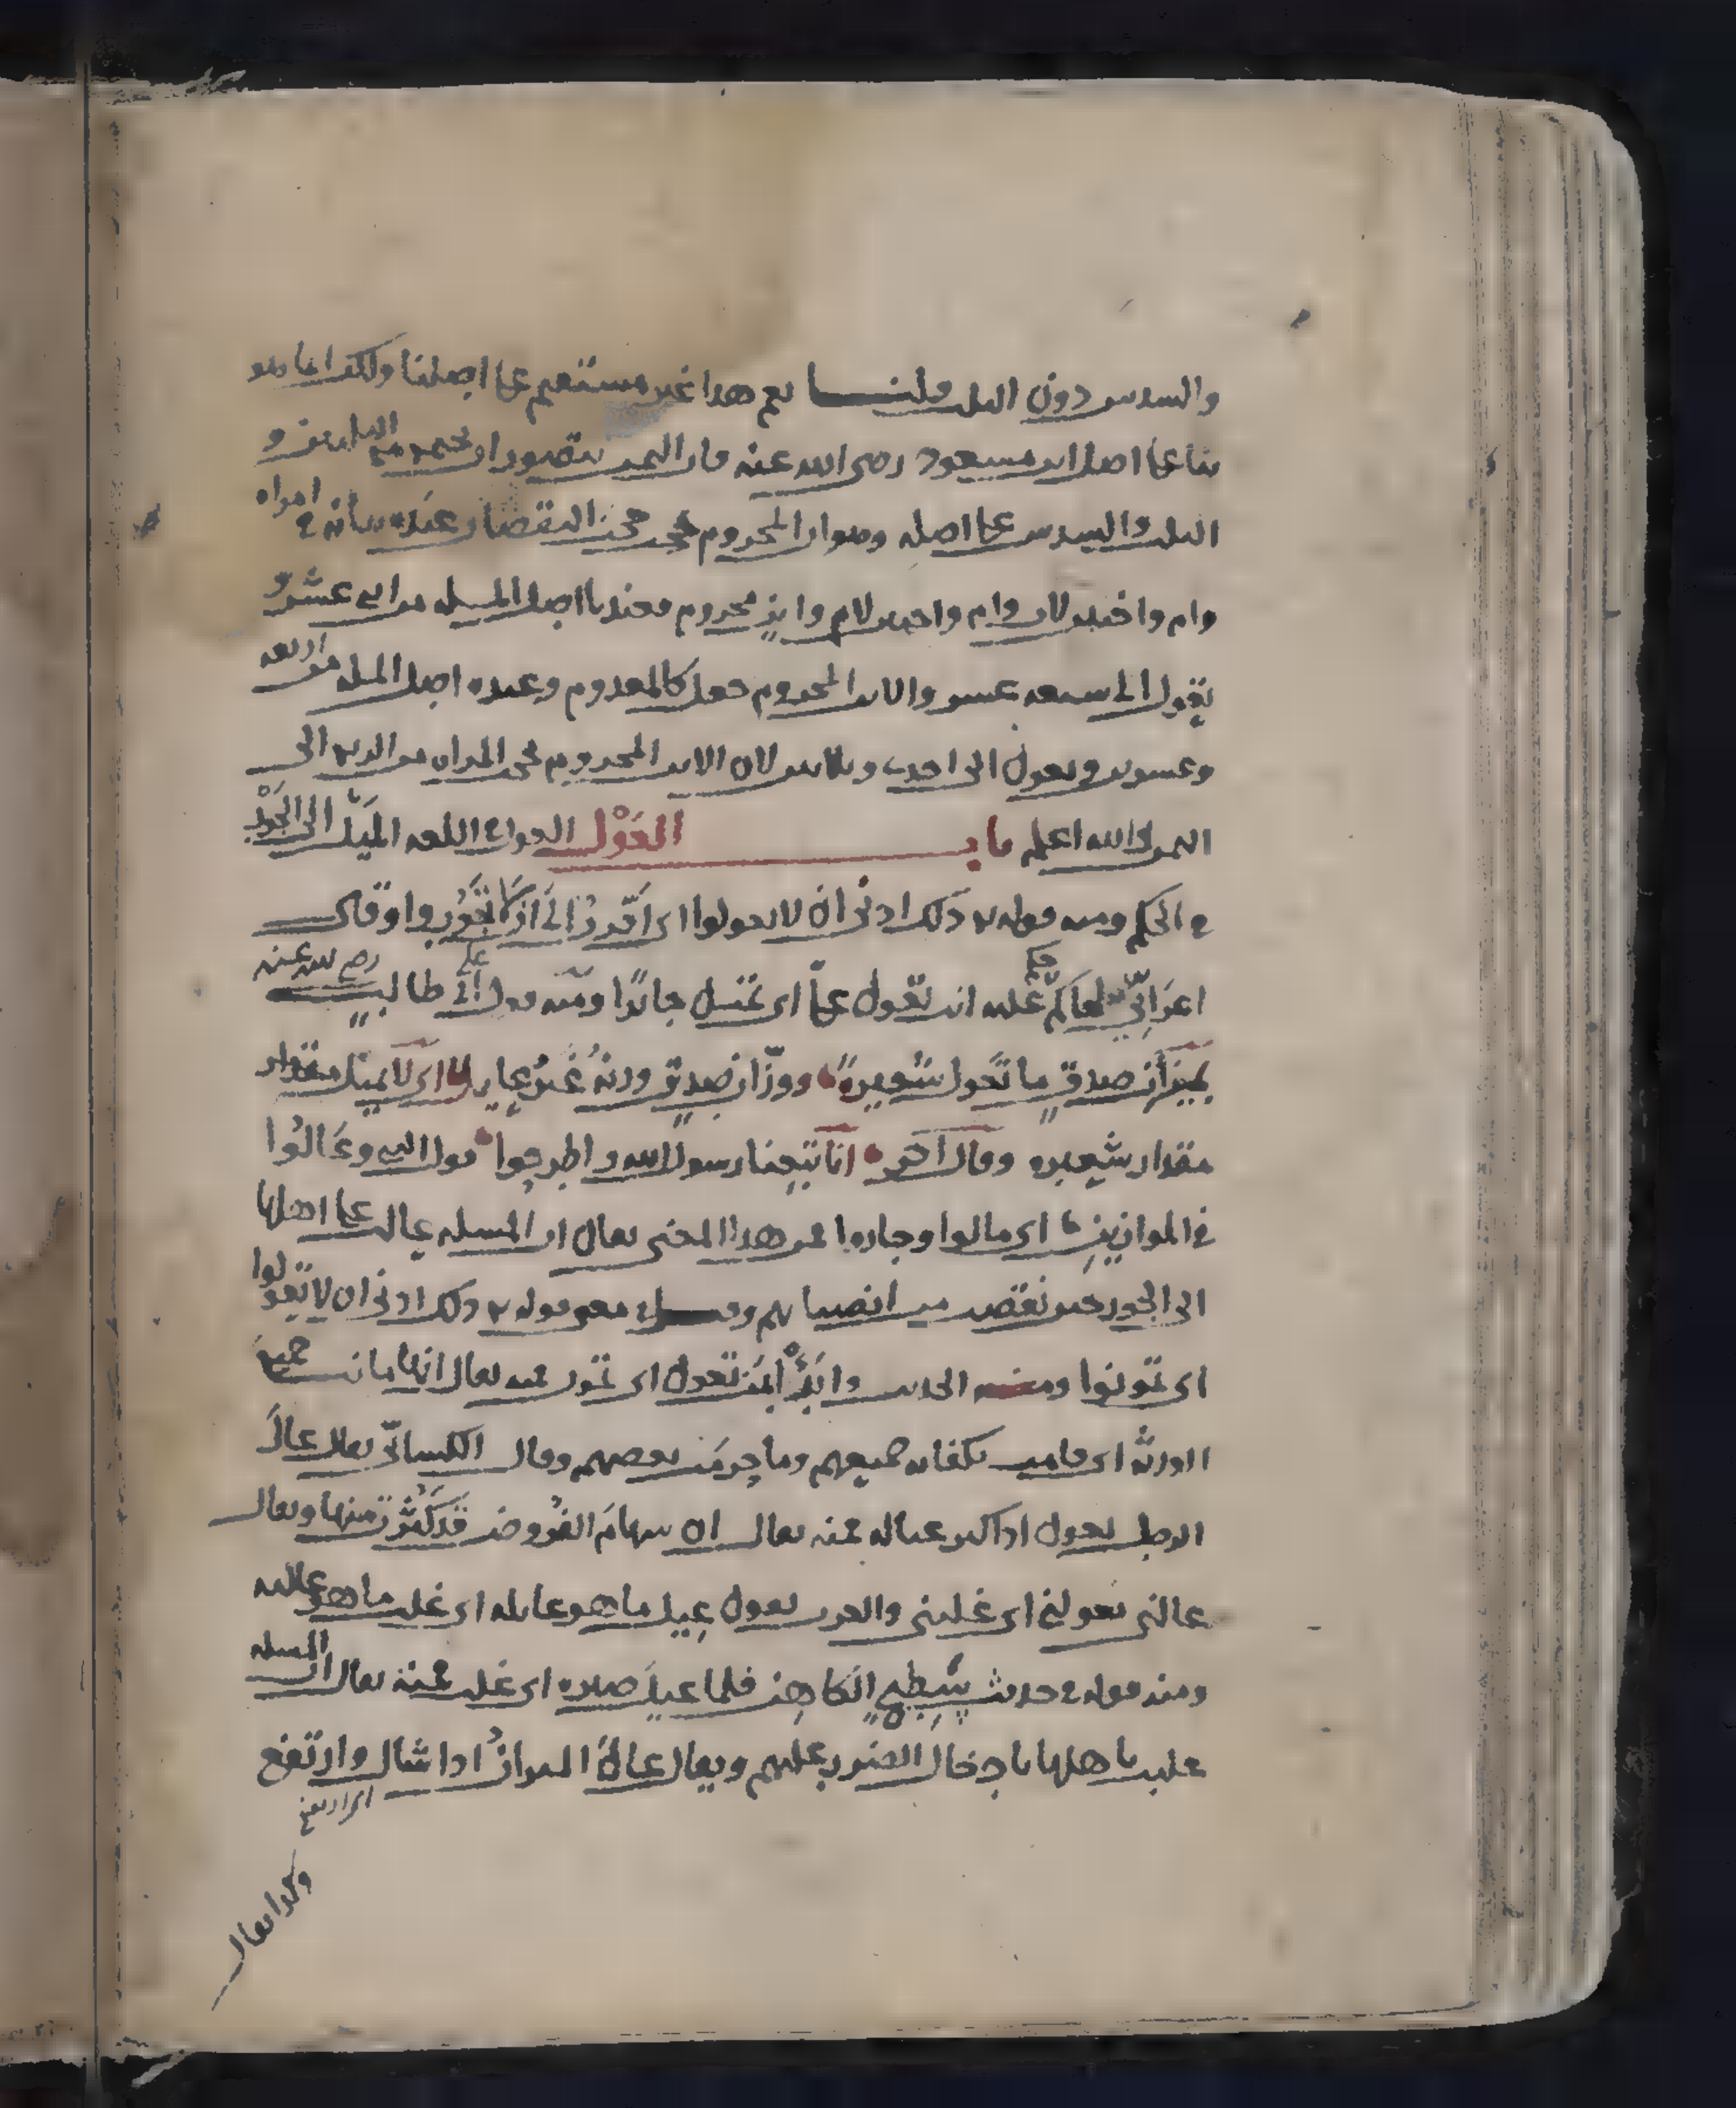 والسدس دون الثلث قلنا نعم هذا غير مستقيم على اصلنا ولكنه انما هو
بناء على اصل ابن مسعود رضي الله عنه فان الثمن يتصور ان يجتمع مع الثلثين و
الثلث والسدس على اصله وهو ان المحروم يحجب حجب النقصان عنده بيانه في امراه
وام واختين لاب وام واختين لام وابن محروم فعندنا اصل المسله من اثنى عشر و
تعول الى سبعه عشر والابن المحروم جعل كالمعدوم وعنده اصل المسله من اربعه
وعشرين وتعول الى احد وثلاثين لان الابن المحروم يحجب المراه من الربع الى
الثمن والله اعلم باب العَوْل العول في اللغه المَيْل الى الجَوْر
في الحكم ومنه قوله تع ذلك ادنى ان لا تعولوا اى اقرب الى ان لا تجوروا وقال
اعرابىّ لحاكم حكم عليه انت تعول علىّ اى تميل جائرا ومنه قول ابى طالب رضي الله عنه
بميزان صدق ما تعول شعيرة ووزّان صدق وزنه غير عايل اى لا يميل مقدار
مقدار شعيره وقال آخر انا تبعنا رسول الله واطرحوا قول النبى وعالوا
في الموازين اى مالوا وجاروا فمن هذا المعنى يقال ان المسله عالت على اهلها
الى الجور حين نقصت من انصبائهم وقيل في معنى قوله تع ذلك ادنى ان لا تعولوا
اى تمونوا ومنه الحديث وابدأ بمن تعول اى تمون فمنه يقال انها مانت جميع
الورثه اى قامت بكفايه جميعهم وما حرمت بعضهم وقال الكسائىّ يقال عال
الرجل يعول اذا كثر عياله فمنه يقال ان سهام الفروض قد كثرت منها ويقال
عالنى يعولنى اى غلبنى والعرب تقول عيل ما هو عايله اى غلب ما هو غالبه
ومنه قوله في حديث سطيح الكاهن فلما عيل صبره اى غلب فمنه يقال ان المسله
غلبت باهلها بادخال الضرر عليهم ويقال عال الميزان اذا شال وارتفع
اى ارتفع
وكذا يقال